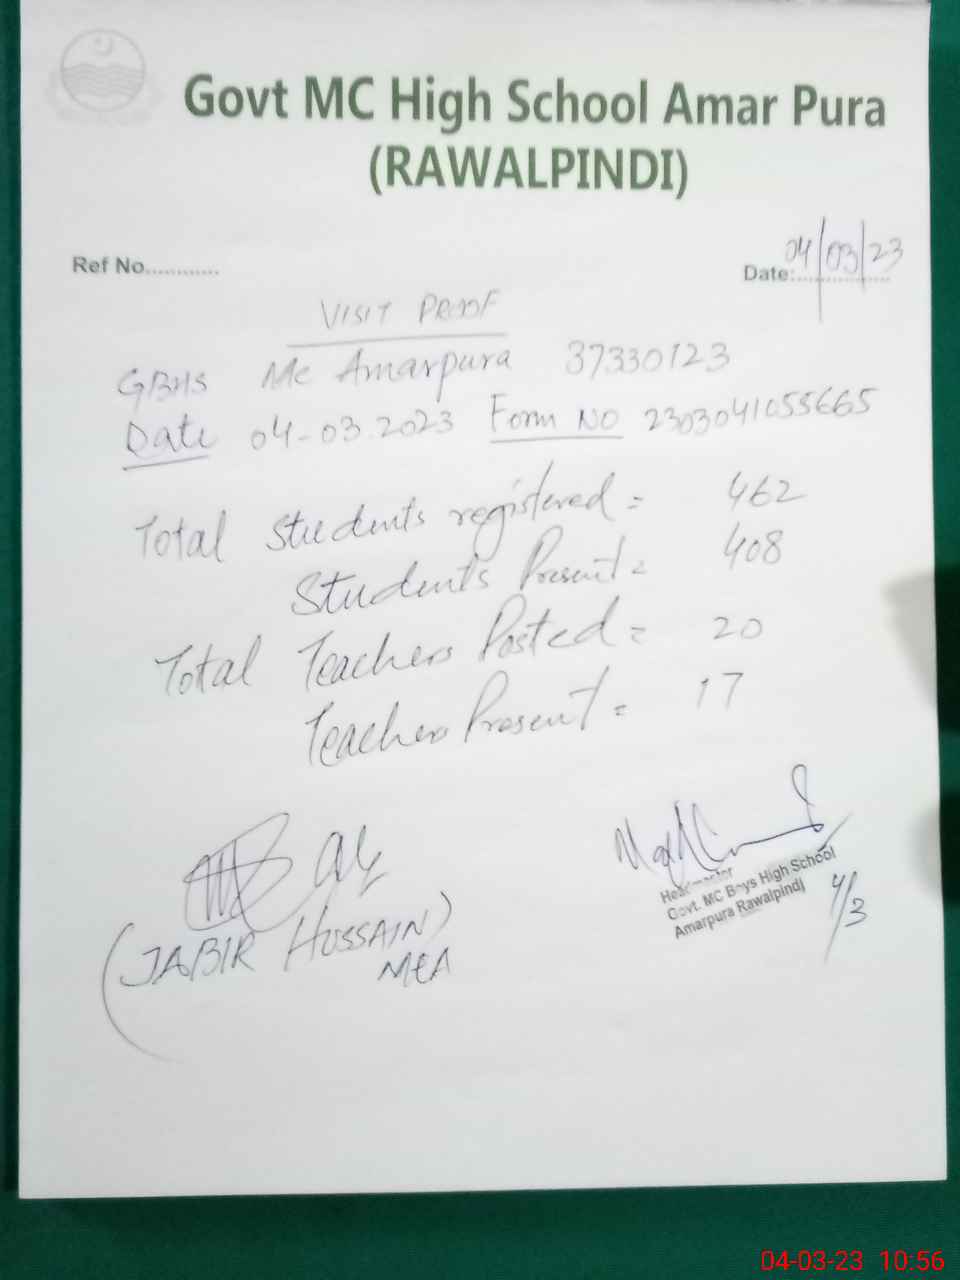 Govt MC High School Amar Pura
(RAWALPINDI)
Ref No............
Date:.................. 04/03/23
VISIT PROOF
GBHS Mc Amarpura 37330123
Date 04-03.2023 Form No 2303041055665
Total Students registered = 462
Students Present = 408
Total Teachers Posted = 20
Teachers Present = 17
(JABIR HUSSAIN)
MEA
Headmaster
Govt. MC Boys High School
Amarpura Rawalpindi
4/3
04-03-23 10:56